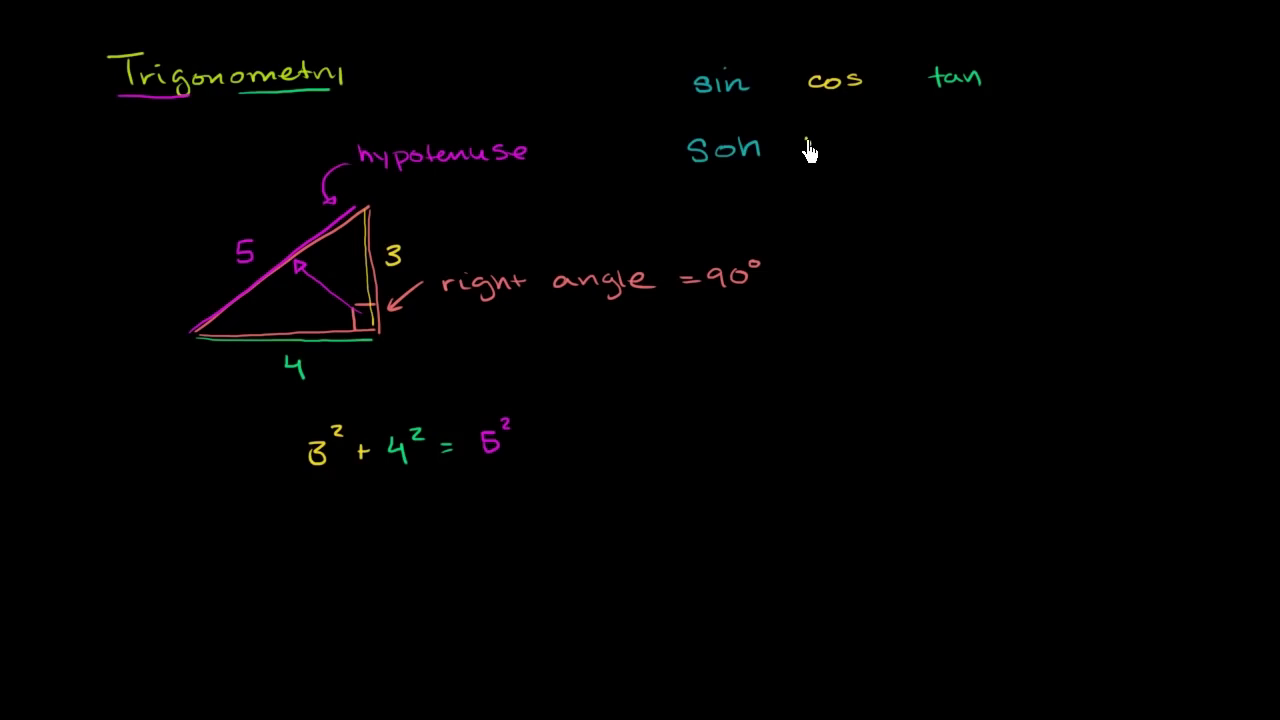 Trigonometry
sin cos tan
soh
hypotenuse
5
3
right angle = 90°
4
3² + 4² = 5²